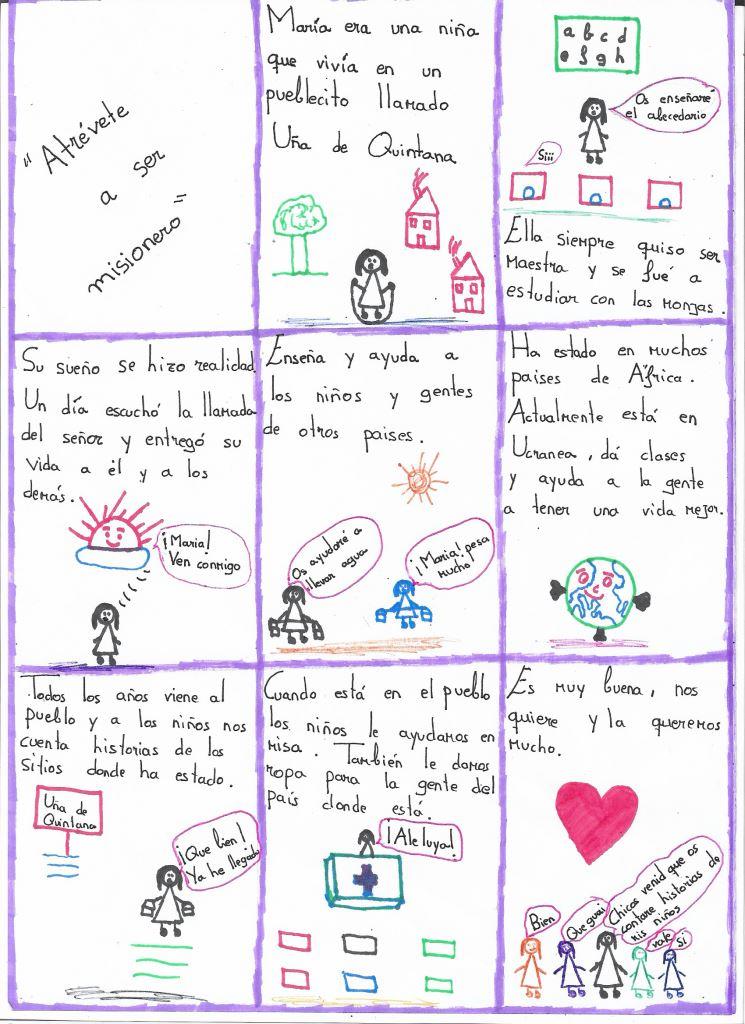 "Atrévete
a ser
misionero"
María era una niña
que vivía en un
pueblecito llamado
Uña de Quintana
a b c d
e f g h
Os enseñaré
el abecedario
Siii
Ella siempre quiso ser
Maestra y se fué a
estudiar con las Monjas.
Su sueño se hizo realidad.
Un día escuchó la llamada
del señor y entregó su
vida a él y a los
demás.
¡Maria!
Ven conmigo
Enseña y ayuda a
los niños y gentes
de otros paises.
Os ayudaré a
llevar agua
¡Maria! pesa
mucho
Ha estado en muchos
paises de África.
Actualmente está en
Ucranea, dá clases
y ayuda a la gente
a tener una vida mejor.
Todos los años viene al
pueblo y a los niños nos
cuenta historias de los
sitios donde ha estado.
Uña de
Quintana
¡Que bien!
Ya he llegado
Cuando está en el pueblo
los niños le ayudamos en
misa. También le damos
ropa para la gente del
país donde está.
¡Aleluya!
Es muy buena, nos
quiere y la queremos
mucho.
Bien
Que guai
Chicos venid que os
contare historias de
mis niños
vale
Si